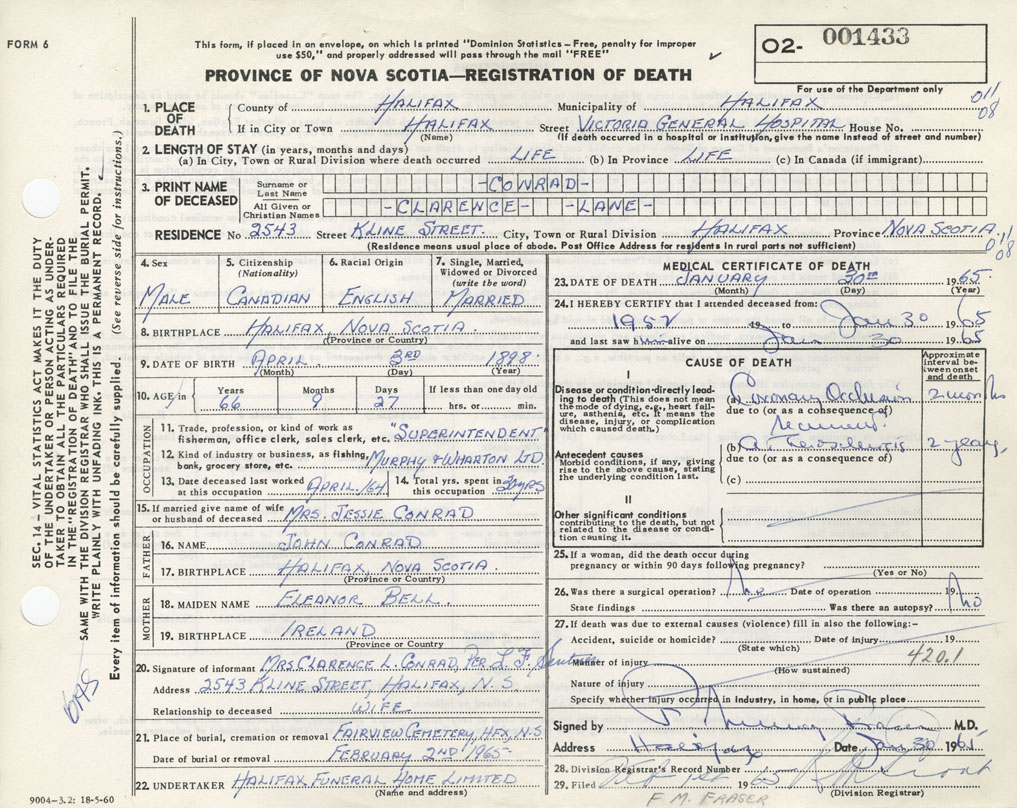 FORM 6
This form, if placed in an envelope, on which is printed "Dominion Statistics – Free, penalty for improper
use $50," and properly addressed will pass through the mail "FREE"
O2- 001433
PROVINCE OF NOVA SCOTIA—REGISTRATION OF DEATH
For use of the Department only
011
08
1. PLACE OF DEATH
County of HALIFAX Municipality of HALIFAX
If in City or Town HALIFAX Street VICTORIA GENERAL HOSPITAL House No.
(Name) (If death occurred in a hospital or institution, give the name instead of street and number)
2. LENGTH OF STAY (in years, months and days)
(a) In City, Town or Rural Division where death occurred LIFE (b) In Province LIFE (c) In Canada (if immigrant)
3. PRINT NAME OF DECEASED
Surname or Last Name -CONRAD-
All Given or Christian Names -CLARENCE- -LANE-
RESIDENCE No 2543 Street KLINE STREET. City, Town or Rural Division HALIFAX Province NOVA SCOTIA.
(Residence means usual place of abode. Post Office Address for residents in rural parts not sufficient)
011
08
4. Sex MALE
5. Citizenship (Nationality) CANADIAN
6. Racial Origin ENGLISH
7. Single, Married, Widowed or Divorced (write the word) MARRIED
8. BIRTHPLACE HALIFAX, NOVA SCOTIA.
(Province or Country)
9. DATE OF BIRTH APRIL 3RD 1898.
(Month) (Day) (Year)
10. AGE in Years 66 Months 9 Days 27 If less than one day old hrs. or min.
OCCUPATION
11. Trade, profession, or kind of work as
fisherman, office clerk, sales clerk, etc. "SUPERINTENDENT"
12. Kind of industry or business, as fishing,
bank, grocery store, etc. MURPHY & WHARTON LTD.
13. Date deceased last worked at this occupation APRIL/64
14. Total yrs. spent in this occupation 20YRS
15. If married give name of wife
or husband of deceased MRS. JESSIE CONRAD
FATHER
16. NAME JOHN CONRAD
17. BIRTHPLACE HALIFAX, NOVA SCOTIA.
(Province or Country)
MOTHER
18. MAIDEN NAME ELEANOR BELL.
19. BIRTHPLACE IRELAND
(Province or Country
20. Signature of informant MRS. CLARENCE L. CONRAD, PER L. F.
Address 2543 KLINE STREET, HALIFAX, N.S.
Relationship to deceased WIFE
21. Place of burial, cremation or removal FAIRVIEW CEMETERY, HFX, N.S
Date of burial or removal FEBRUARY 2ND 1965
22. UNDERTAKER HALIFAX FUNERAL HOME LIMITED
(Name and address)
9004-3.2: 18-5-60
MEDICAL CERTIFICATE OF DEATH
23. DATE OF DEATH JANUARY 30TH 1965.
(Month) (Day) (Year)
24. I HEREBY CERTIFY that I attended deceased from:
1952 19 to Jan 30 1965
and last saw h alive on Jan 30 1965
CAUSE OF DEATH
Approximate interval between onset and death
I
Disease or condition directly leading to death (This does not mean the mode of dying, e.g., heart failure, asthenia, etc. It means the disease, injury, or complication which caused death.)
(a) Coronary Occlusion 2 months
due to (or as a consequence of)
recurrent
Antecedent causes
Morbid conditions, if any, giving rise to the above cause, stating the underlying condition last.
(b) 2 years,
due to (or as a consequence of)
(c)
II
Other significant conditions
contributing to the death, but not related to the disease or condition causing it.
25. If a woman, did the death occur during
pregnancy or within 90 days following pregnancy?
(Yes or No)
26. Was there a surgical operation? no Date of operation 19
State findings Was there an autopsy? no
27. If death was due to external causes (violence) fill in also the following:-
Accident, suicide or homicide? Date of injury 19
(State which)
420.1
Manner of injury
(How sustained)
Nature of injury
Specify whether injury occurred in industry, in home, or in public place
Signed by M.D.
Address Halifax Date Jan 30 1965
28. Division Registrar's Record Number
29. Filed 19
(Division Registrar)
F. M. FRASER
SEC. 14 – VITAL STATISTICS ACT MAKES IT THE DUTY
OF THE UNDERTAKER OR PERSON ACTING AS UNDER-
TAKER TO OBTAIN ALL THE PARTICULARS REQUIRED
IN THE "REGISTRATION OF DEATH" AND TO FILE THE
SAME WITH THE DIVISION REGISTRAR WHO SHALL ISSUE THE BURIAL PERMIT.
WRITE PLAINLY WITH UNFADING INK. THIS IS A PERMANENT RECORD.
Every item of information should be carefully supplied. (See reverse side for instructions.)